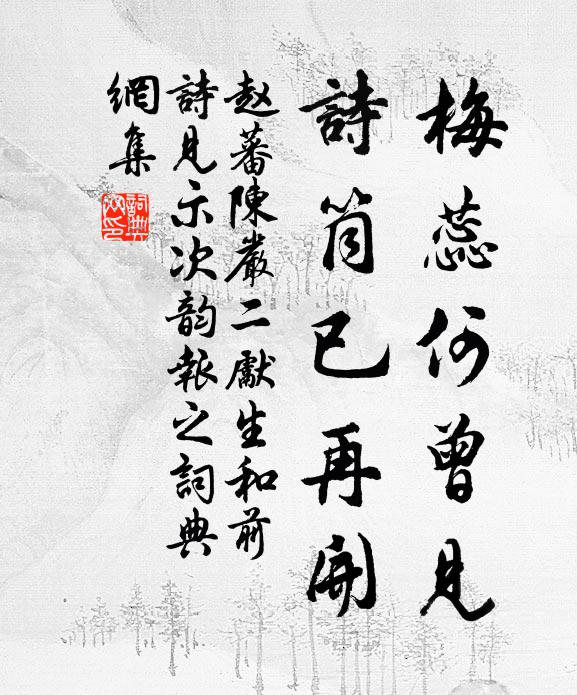 梅蕊何曾見
詩筒已再開
趙蕃陳嚴二獻生和前
詩見示次韵報之詞典
網集
詞典網印